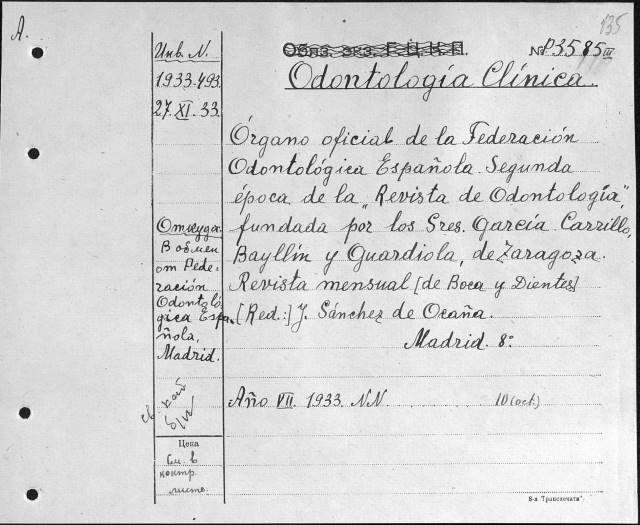 A.
135
Инв. N.
1933-493
27. XI. 33.
Обяз. экз. Г.Ц.К.П.
№ P3585 III
Odontología Clínica.
Órgano oficial de la Federación
Odontológica Española. Segunda
época de la „Revista de Odontología",
fundada por los Sres. García Carrillo,
Bayllín y Guardiola, de Zaragoza.
Revista mensual [de Boca y Dientes]
[Red.:] J. Sánchez de Ocaña.
Madrid. 8º
Откуда:
В обмен
от Fede-
ración
Odontoló-
gica Espa-
ñola,
Madrid.
Año VII. 1933. NN 10 (oct.)
Цена
См. в
контр.
листе.
8-я "Транспечати".